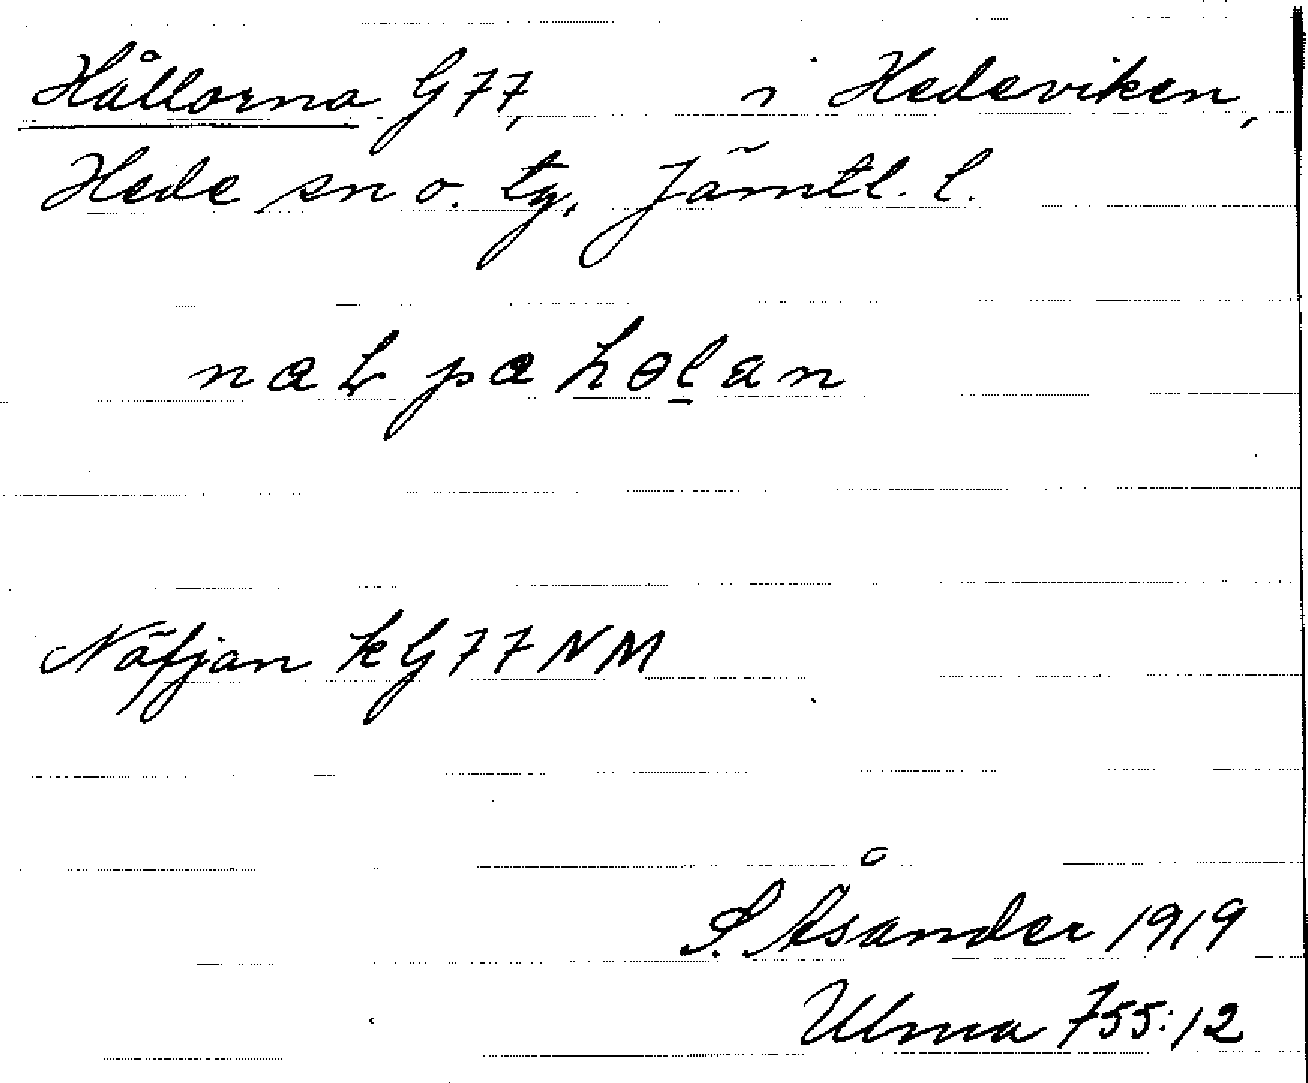 Hållorna G77, i Hedeviken,
Hede sn o. tg, Jämtl. l.
Näfjan k G77 NM
S. Åsander 1919
Ulma 755:12